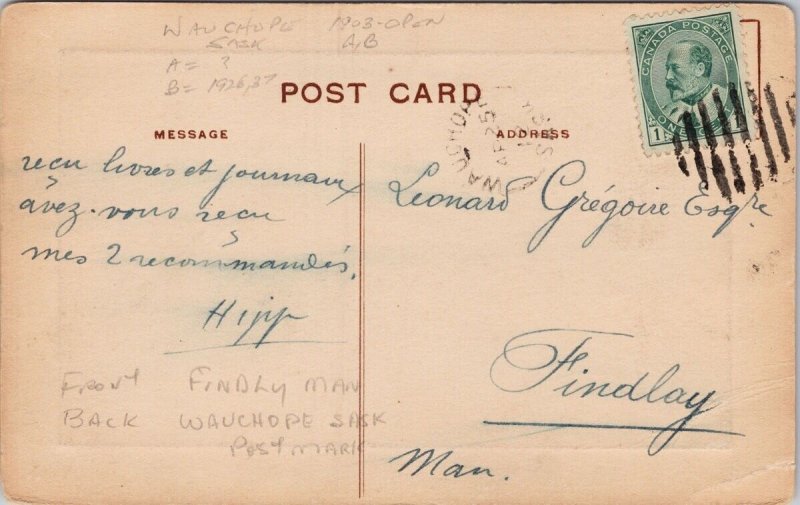 WAUCHOPE 1903-OPEN
SASK A,B
A = ?
B = 1926,37
POST CARD
MESSAGE
ADDRESS
CANADA POSTAGE
1 ONE CENT 1
WAUCHOPE
AP 25
SASK
reçu livres et journaux
avez-vous reçu
mes 2 recommandés.
Hipp
Leonard Grégoire Esqre
Findlay
Man.
FRONT FINDLY MAN
BACK WAUCHOPE SASK
POST MARK